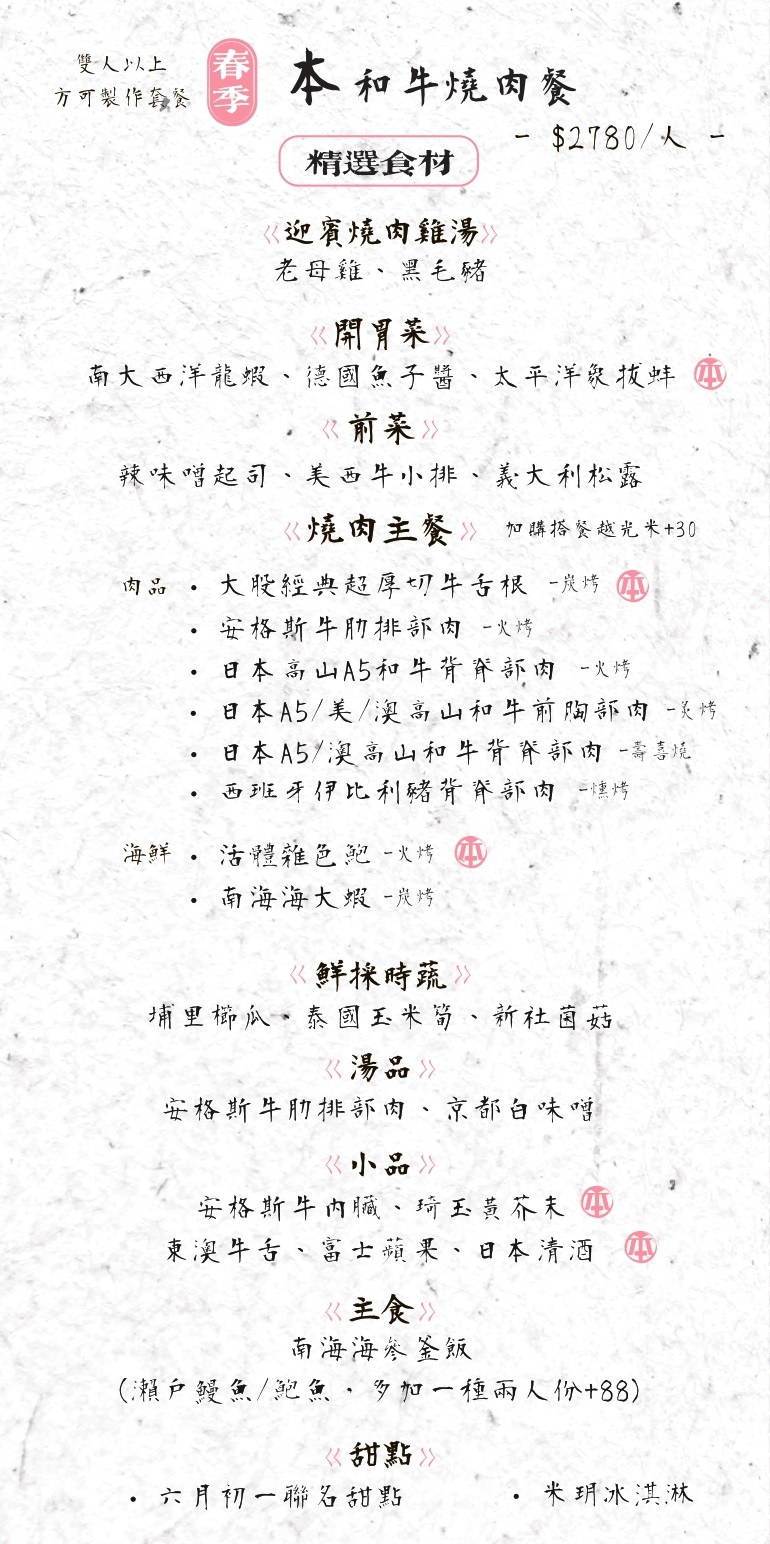 雙人以上
方可製作套餐
春季
本和牛燒肉餐
- $2780/人 -
精選食材
《迎賓燒肉雞湯》
老母雞、黑毛豬
《開胃菜》
南大西洋龍蝦、德國魚子醬、太平洋象拔蚌 本
《前菜》
辣味噌起司、美西牛小排、義大利松露
《燒肉主餐》 加購搭餐越光米+30
肉品 • 大股經典超厚切牛舌根 -炭烤 本
• 安格斯牛肋排部肉 -火烤
• 日本高山A5和牛背脊部肉 -火烤
• 日本A5/美/澳高山和牛前胸部肉 -炙烤
• 日本A5/澳高山和牛背脊部肉 -壽喜燒
• 西班牙伊比利豬背脊部肉 -燻烤
海鮮 • 活體雜色鮑 -火烤 本
• 南海海大蝦 -炭烤
《鮮採時蔬》
埔里櫛瓜、泰國玉米筍、新社菌菇
《湯品》
安格斯牛肋排部肉、京都白味噌
《小品》
安格斯牛內臟、琦玉黃芥末 本
東澳牛舌、富士蘋果、日本清酒 本
《主食》
南海海參釜飯
(瀨戶鰻魚/鮑魚，多加一種兩人份+88)
《甜點》
• 六月初一聯名甜點 • 米玥冰淇淋